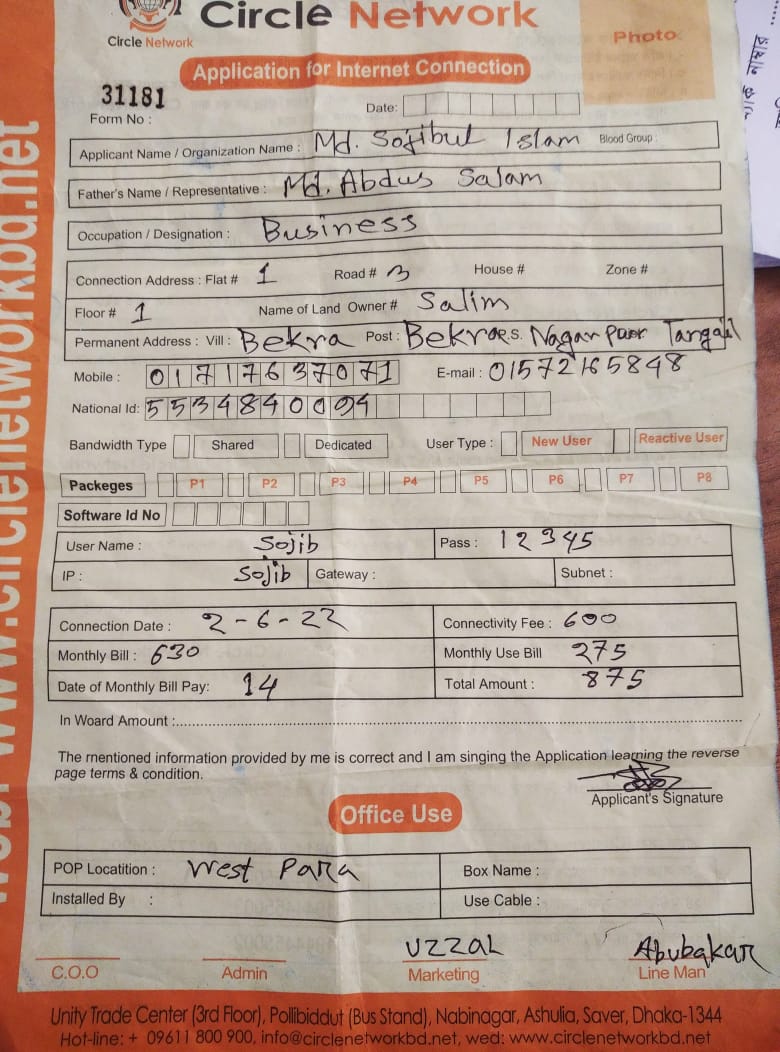 Circle Network
Circle Network
Photo
Application for Internet Connection
31181
Form No :
Date:
Applicant Name / Organization Name : Md. Sojibul Islam Blood Group :
Father's Name / Representative : Md. Abdus Salam
Occupation / Designation : Business
Connection Address : Flat # 1 Road # 3 House # Zone #
Floor # 1 Name of Land Owner # Salim
Permanent Address : Vill : Bekra Post : Bekra P.S. Nagarpur Tangail
Mobile : 01717637071 E-mail : 01572165848
National Id: 5534840094
Bandwidth Type Shared Dedicated User Type : New User Reactive User
Packeges P1 P2 P3 P4 P5 P6 P7 P8
Software Id No
User Name : Sojib Pass : 12345
IP : Sojib Gateway : Subnet :
Connection Date : 2-6-22 Connectivity Fee : 600
Monthly Bill : 630 Monthly Use Bill 275
Date of Monthly Bill Pay: 14 Total Amount : 875
In Woard Amount :
The mentioned information provided by me is correct and I am singing the Application learning the reverse
page terms & condition.
Applicant's Signature
Office Use
POP Locatition : West Para Box Name :
Installed By : Use Cable :
Uzzal Abubakar
C.O.O Admin Marketing Line Man
Unity Trade Center (3rd Floor), Pollibiddut (Bus Stand), Nabinagar, Ashulia, Saver, Dhaka-1344
Hot-line: + 09611 800 900, info@circlenetworkbd.net, wed: www.circlenetworkbd.net
www.circlenetworkbd.net